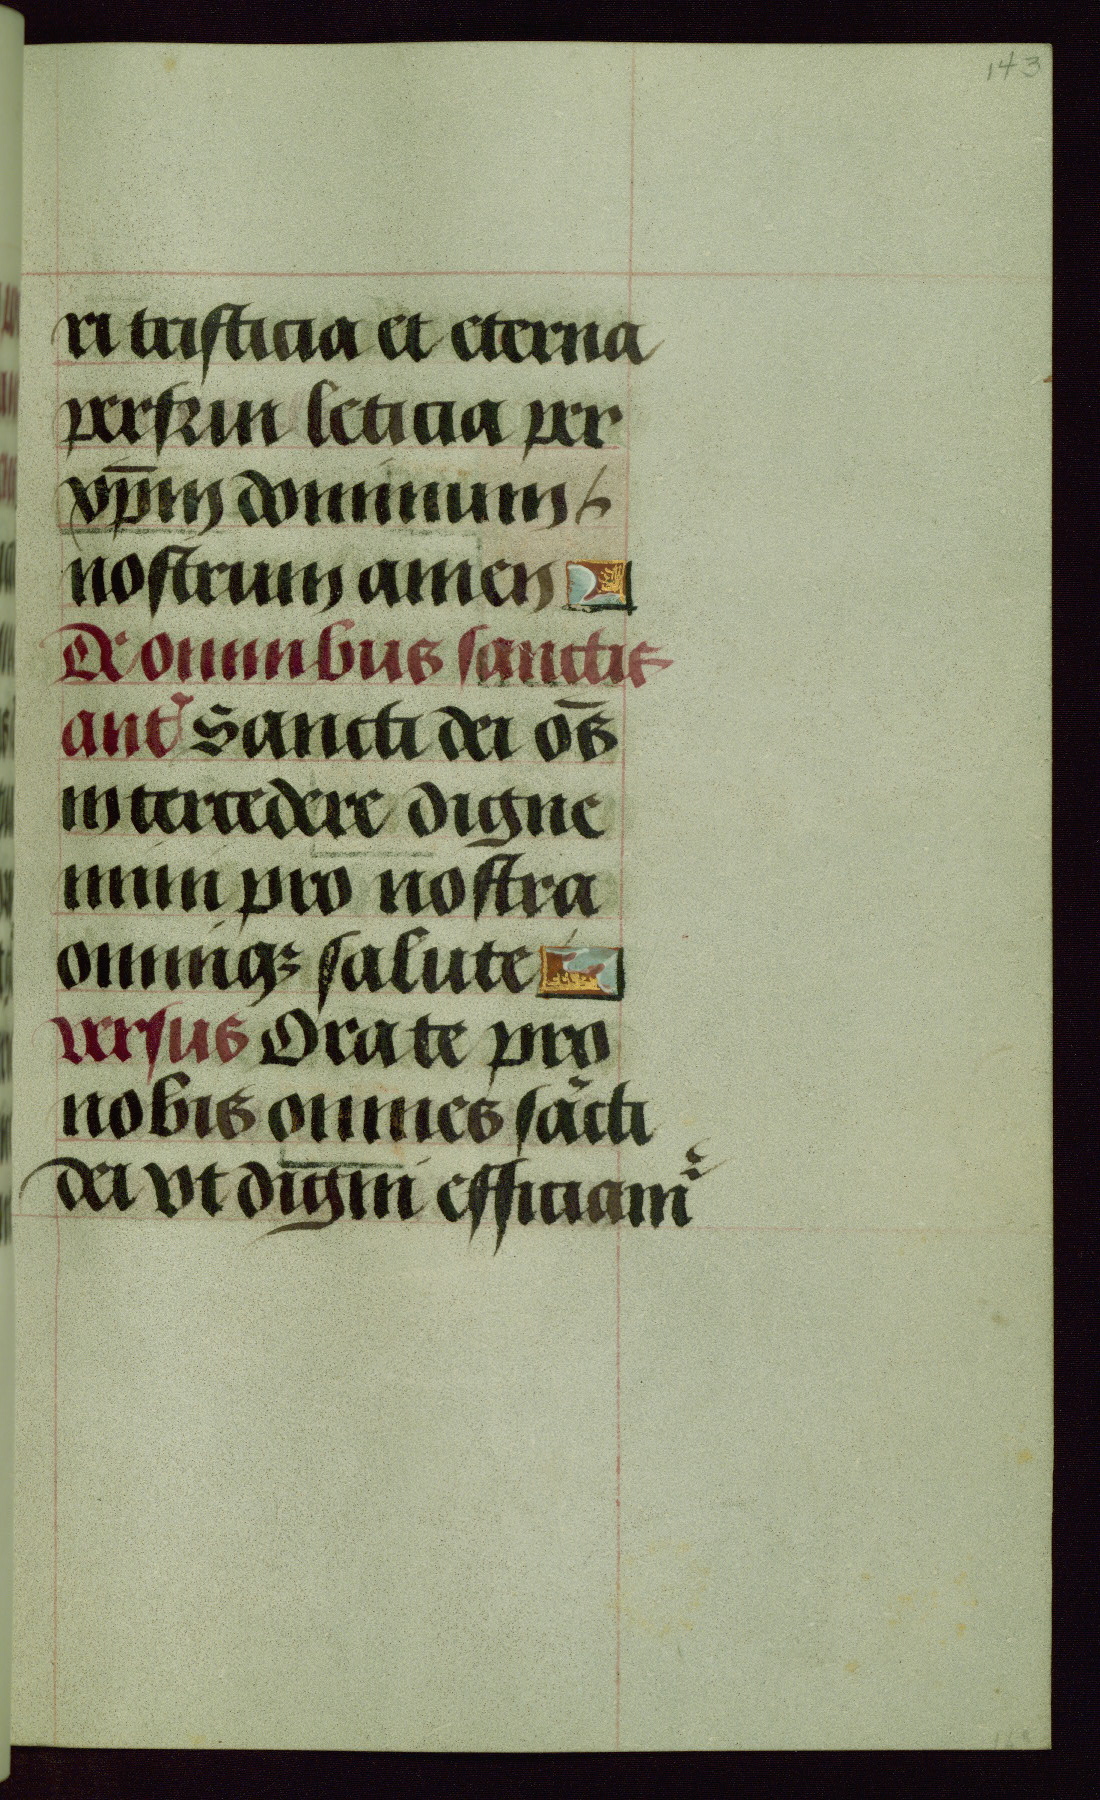 143
ri tristicia et eterna
perfrui leticia per
xp̄m dominum
nostrum amen
De omnibus sanctis
ant᷎ Sancti dei om̄s
intercedere digne
mini pro nostra
omniqꝫ salute
versus Orate pro
nobis omnes sācti
dei vt digni efficiam᷎